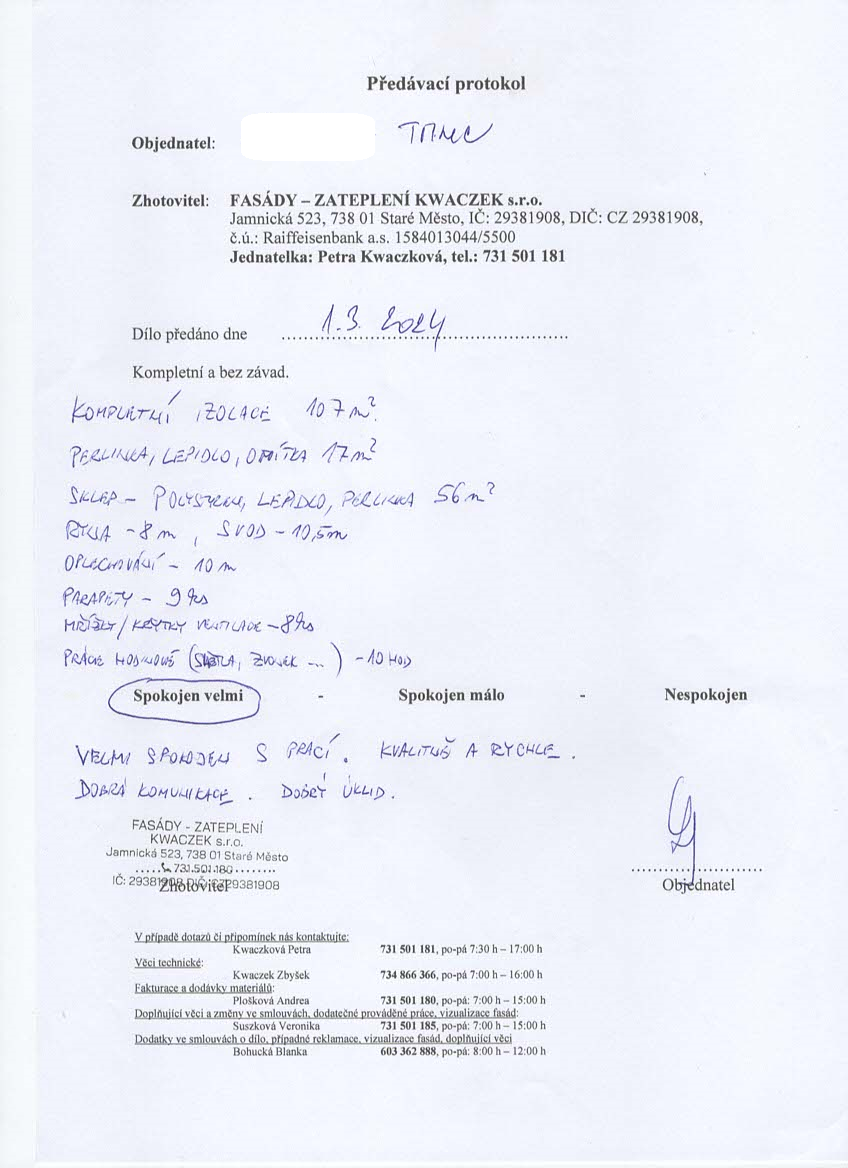 Předávací protokol
Objednatel:
Zhotovitel: FASÁDY – ZATEPLENÍ KWACZEK s.r.o.
Jamnická 523, 738 01 Staré Město, IČ: 29381908, DIČ: CZ 29381908,
č.ú.: Raiffeisenbank a.s. 1584013044/5500
Jednatelka: Petra Kwaczková, tel.: 731 501 181
Dílo předáno dne 1.3. 2024
Kompletní a bez závad.
KOMPLETNÍ IZOLACE 107 m².
PERLINKA, LEPIDLO, OMÍTKA 17 m²
SKLEP – POLYSTYREN, LEPIDLO, PERLINKA 56 m²
RÝNA - 8 m, SVOD - 10,5m
OPLECHOVÁNÍ - 10 m
PARAPETY - 9 ks
MŘÍŽKY/KRYTKY VENTILACE - 8ks
PRÁCE HODINOVÉ (SVĚTLA, ZVONEK ...) - 10 HOD
Spokojen velmi - Spokojen málo - Nespokojen
VELMI SPOKOJEN S PRACÍ. KVALITNĚ A RYCHLE.
DOBRÁ KOMUNIKACE. DOBRÝ ÚKLID.
FASÁDY - ZATEPLENÍ
KWACZEK s.r.o.
Jamnická 523, 738 01 Staré Město
731 501 180
IČ: 29381908 DIČ: CZ29381908
Zhotovitel Objednatel
V případě dotazů či připomínek nás kontaktujte:
Kwaczková Petra 731 501 181, po-pá 7:30 h – 17:00 h
Věci technické:
Kwaczek Zbyšek 734 866 366, po-pá 7:00 h – 16:00 h
Fakturace a dodávky materiálů:
Plošková Andrea 731 501 180, po-pá: 7:00 h – 15:00 h
Doplňující věci a změny ve smlouvách, dodatečné prováděné práce, vizualizace fasád:
Suszková Veronika 731 501 185, po-pá: 7:00 h – 15:00 h
Dodatky ve smlouvách o dílo, případné reklamace, vizualizace fasád, doplňující věci
Bohucká Blanka 603 362 888, po-pá: 8:00 h – 12:00 h